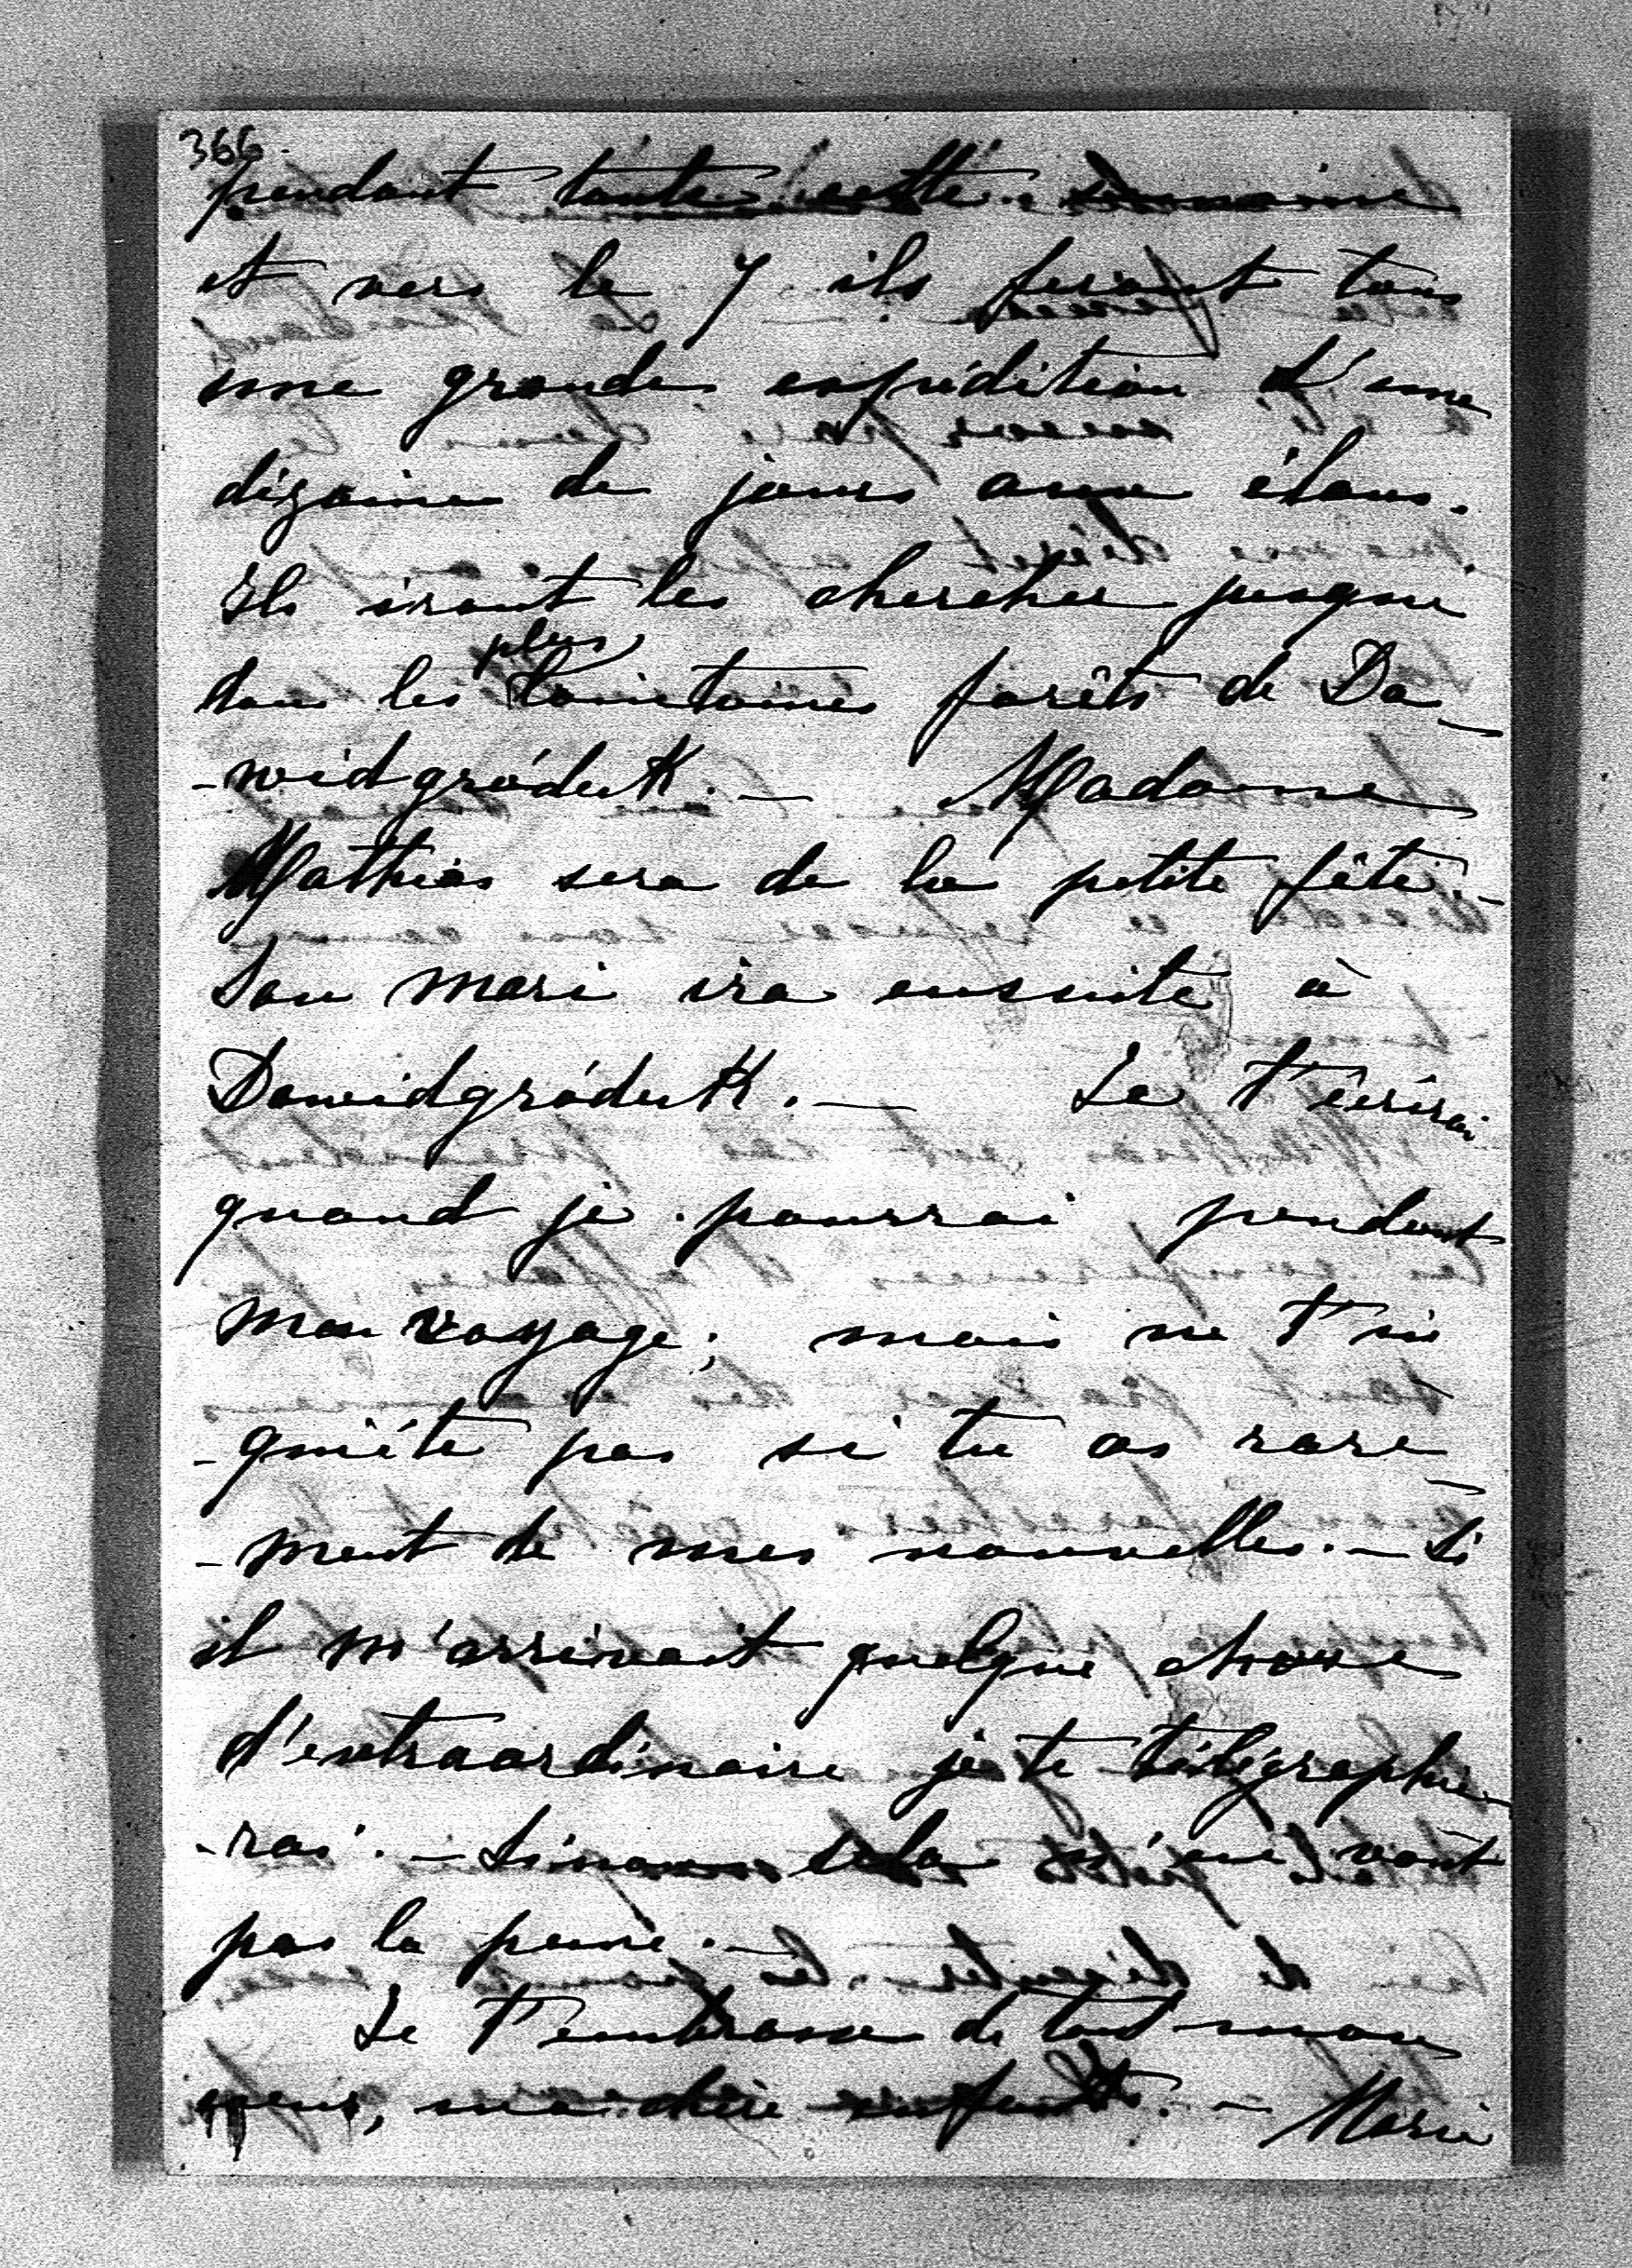 366.
pendant toute cette semaine
et vers le 7 ils feront tous
une grande expédition d'une
dizaine de jours aux élans.
Ils iront les chercher jusque
dans les plus lointaines forêts de Da-
-widgródek. — Madame
Mathias sera de la petite fête -
Son mari ira ensuite à
Dawidgródek. — Je t'écrirai
quand je pourrai pendant
mon voyage; mais ne t'in
-quiète pas si tu as rare-
-ment de mes nouvelles. — Si
il m'arrivait quelque chose
d'extraordinaire je te télégraphie-
-rai. — Sinon cela n'en vaut
pas la peine. —
Je t'embrasse de tout mon
cœur, ma chère enfant. — Marie